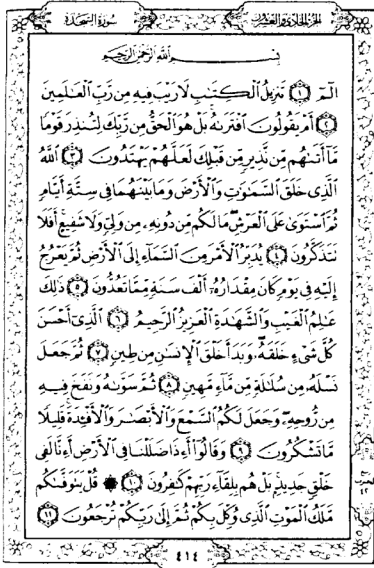 الجزء الحادي والعشرون سورة السجدة
بسم الله الرحمن الرحيم
الٓمٓ ١ تَنزِيلُ ٱلْكِتَٰبِ لَا رَيْبَ فِيهِ مِن رَّبِّ ٱلْعَٰلَمِينَ
٢ أَمْ يَقُولُونَ ٱفْتَرَىٰهُ بَلْ هُوَ ٱلْحَقُّ مِن رَّبِّكَ لِتُنذِرَ قَوْمًا
مَّآ أَتَىٰهُم مِّن نَّذِيرٍ مِّن قَبْلِكَ لَعَلَّهُمْ يَهْتَدُونَ ٣ ٱللَّهُ
ٱلَّذِى خَلَقَ ٱلسَّمَٰوَٰتِ وَٱلْأَرْضَ وَمَا بَيْنَهُمَا فِى سِتَّةِ أَيَّامٍ
ثُمَّ ٱسْتَوَىٰ عَلَى ٱلْعَرْشِ مَا لَكُم مِّن دُونِهِۦ مِن وَلِىٍّ وَلَا شَفِيعٍ أَفَلَا
تَتَذَكَّرُونَ ٤ يُدَبِّرُ ٱلْأَمْرَ مِنَ ٱلسَّمَآءِ إِلَى ٱلْأَرْضِ ثُمَّ يَعْرُجُ
إِلَيْهِ فِى يَوْمٍ كَانَ مِقْدَارُهُۥٓ أَلْفَ سَنَةٍ مِّمَّا تَعُدُّونَ ٥ ذَٰلِكَ
عَٰلِمُ ٱلْغَيْبِ وَٱلشَّهَٰدَةِ ٱلْعَزِيزُ ٱلرَّحِيمُ ٦ ٱلَّذِىٓ أَحْسَنَ
كُلَّ شَىْءٍ خَلَقَهُۥ وَبَدَأَ خَلْقَ ٱلْإِنسَٰنِ مِن طِينٍ ٧ ثُمَّ جَعَلَ
نَسْلَهُۥ مِن سُلَٰلَةٍ مِّن مَّآءٍ مَّهِينٍ ٨ ثُمَّ سَوَّىٰهُ وَنَفَخَ فِيهِ
مِن رُّوحِهِۦ وَجَعَلَ لَكُمُ ٱلسَّمْعَ وَٱلْأَبْصَٰرَ وَٱلْأَفْـِٔدَةَ قَلِيلًا
مَّا تَشْكُرُونَ ٩ وَقَالُوٓا۟ أَءِذَا ضَلَلْنَا فِى ٱلْأَرْضِ أَءِنَّا لَفِى
خَلْقٍ جَدِيدٍ بَلْ هُم بِلِقَآءِ رَبِّهِمْ كَٰفِرُونَ ١٠ ۞ قُلْ يَتَوَفَّىٰكُم
مَّلَكُ ٱلْمَوْتِ ٱلَّذِى وُكِّلَ بِكُمْ ثُمَّ إِلَىٰ رَبِّكُمْ تُرْجَعُونَ ١١